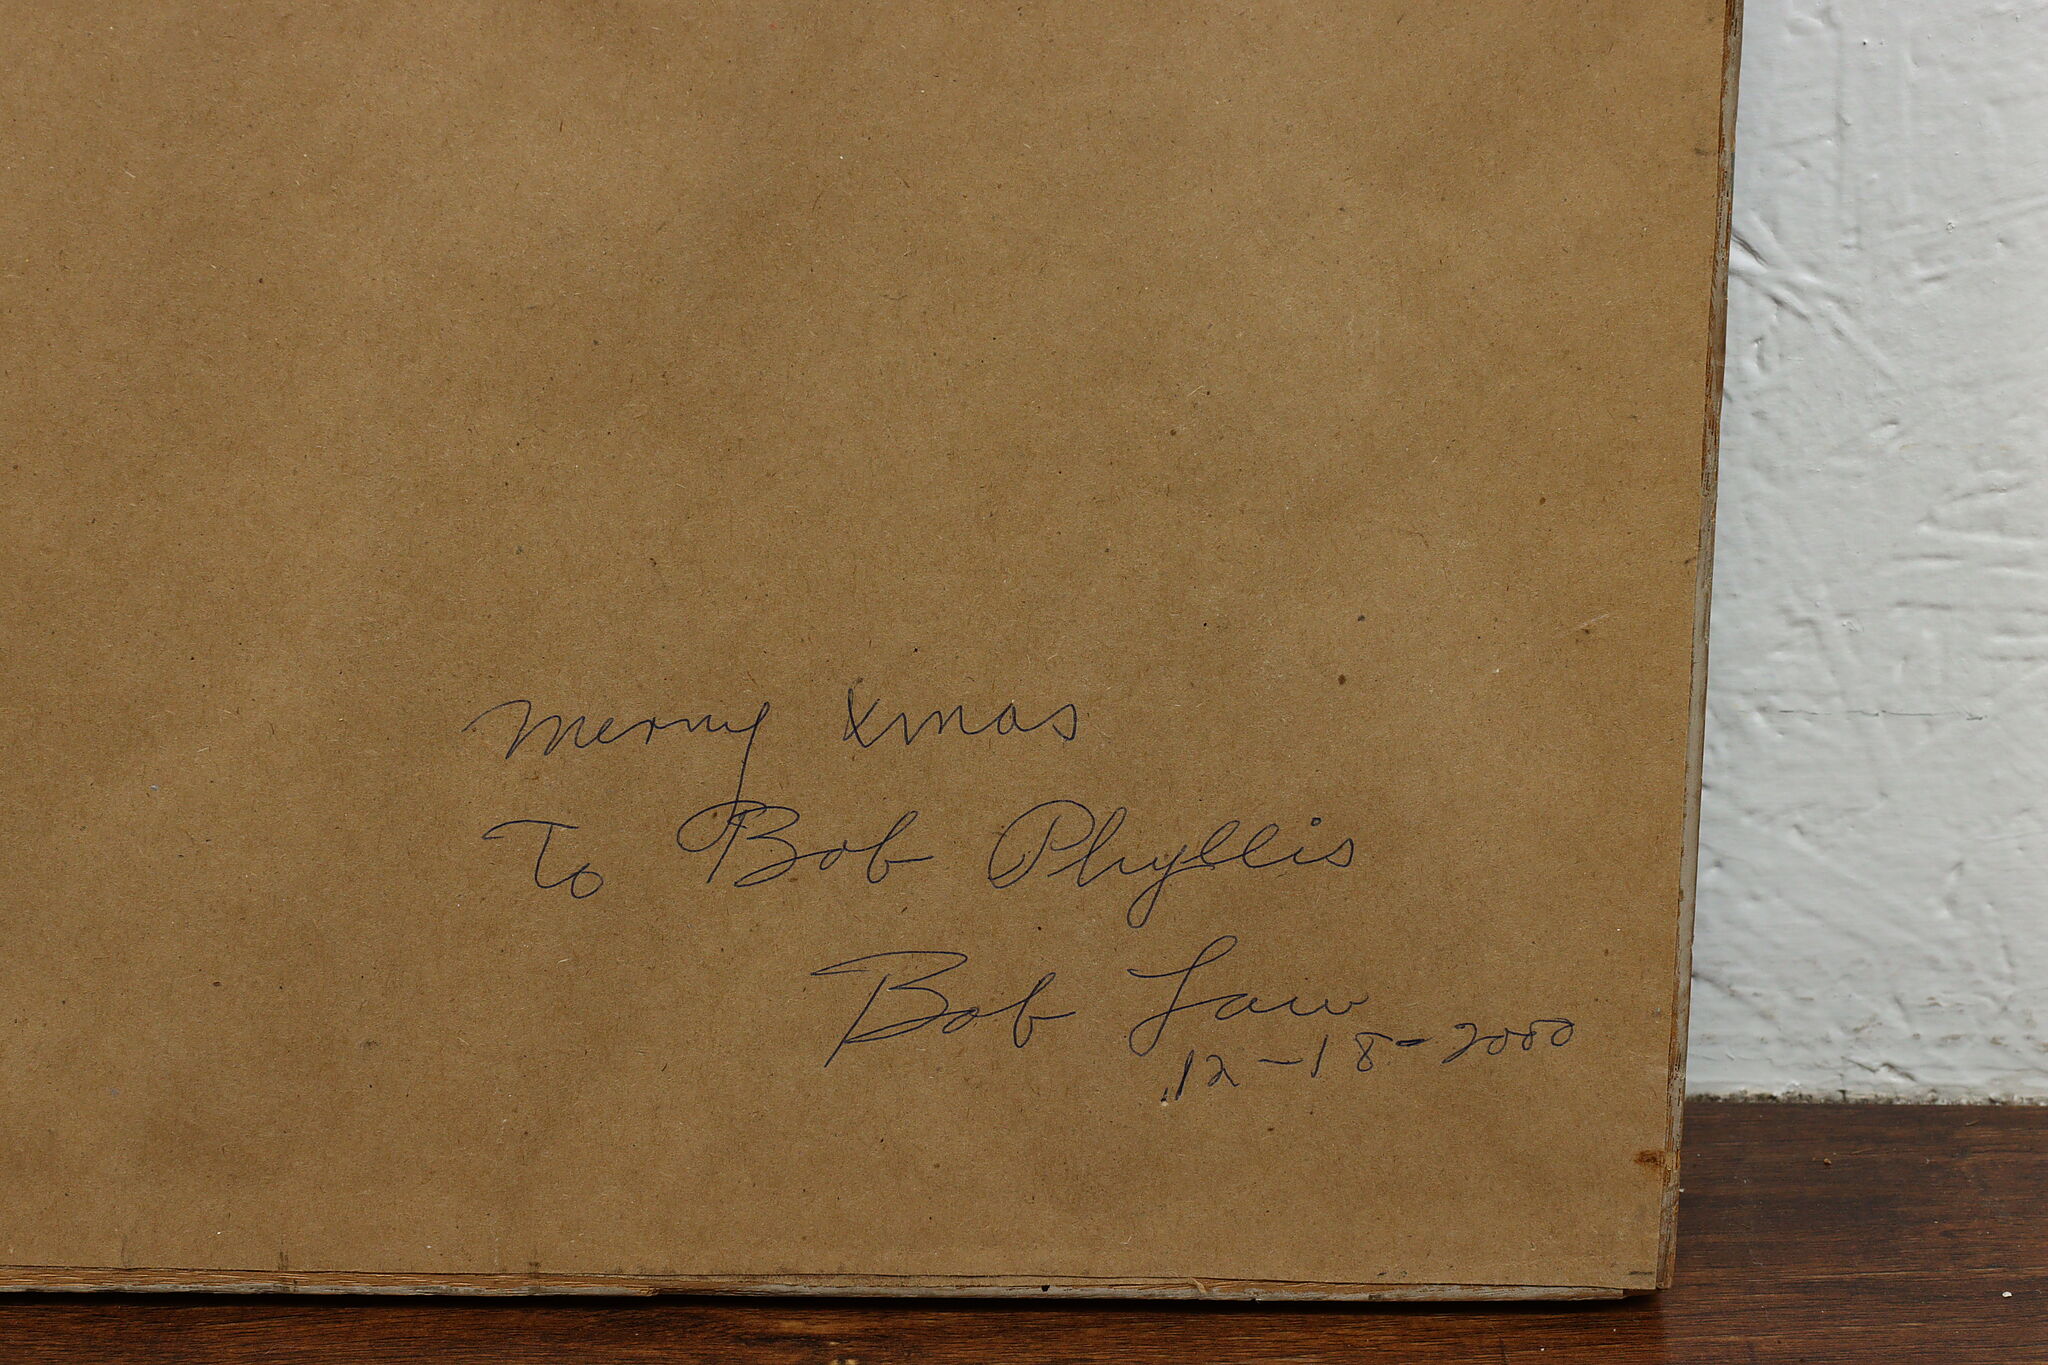 Merry Xmas
To Bob Phyllis
Bob Law
12-18-2000